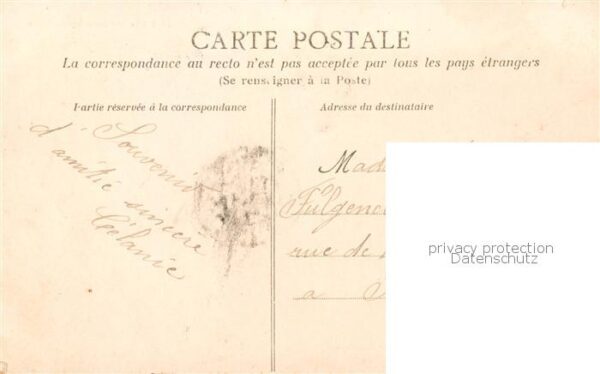 CARTE POSTALE
La correspondance au recto n'est pas acceptée par tous les pays étrangers
(Se renseigner à la Poste)
Partie réservée à la correspondance
Adresse du destinataire
Souvenir
d'amitié sincère
Célanie
Mad
Fulgenc
rue de
a
privacy protection
Datenschutz